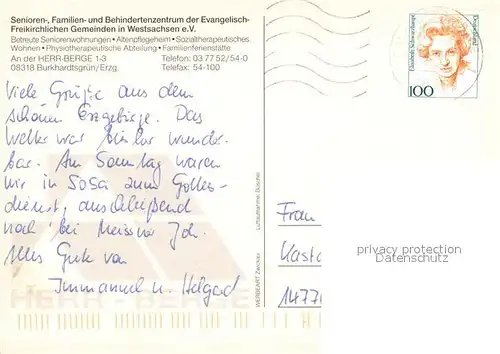 Senioren-, Familien- und Behindertenzentrum der Evangelisch-
Freikirchlichen Gemeinden in Westsachsen e.V.
Betreute Seniorenwohnungen • Altenpflegeheim • Sozialtherapeutisches
Wohnen • Physiotherapeutische Abteilung • Familienferienstätte
An der HERR-BERGE 1-3 Telefon: 03 77 52/54-0
08318 Burkhardtsgrün/Erzg. Telefax: 54-100
Elisabeth Schwarzhaupt
Deutschland
100
Viele Grüße aus dem
schönen Erzgebirge. Das
Wetter war bisher wunder-
bar. Am Sonntag waren
wir in Sosa zum Gottes-
dienst, anschließend
noch bei Meissner Joh.
Alles Gute von
Immanuel u. Helgard
Luftaufnahme: Duschel
WERBEART Zwickau
Frau
Kasta
1477
privacy protection
Datenschutz
HERR-BERGE